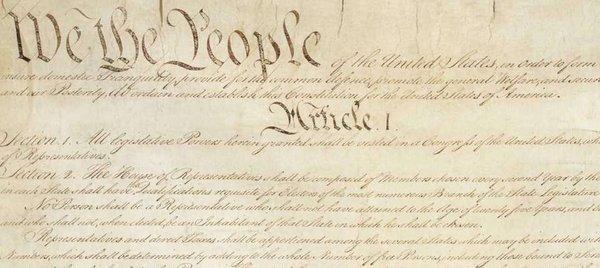 We the People of the United States, in Order to form
insure domestic Tranquility, provide for the common defence, promote the general Welfare, and secure
and our Posterity, do ordain and establish this Constitution for the United States of America.
Article. I.
Section. 1. All legislative Powers herein granted shall be vested in a Congress of the United States, wh
of Representatives.
Section. 2. The House of Representatives shall be composed of Members chosen every second Year by the
in each State shall have the Qualifications requisite for Electors of the most numerous Branch of the State Legislature
No Person shall be a Representative who shall not have attained to the Age of twenty five Years, and
and who shall not, when elected, be an Inhabitant of that State in which he shall be chosen.
Representatives and direct Taxes shall be apportioned among the several States which may be included
Numbers, which shall be determined by adding to the whole Number of free Persons, including those bound to